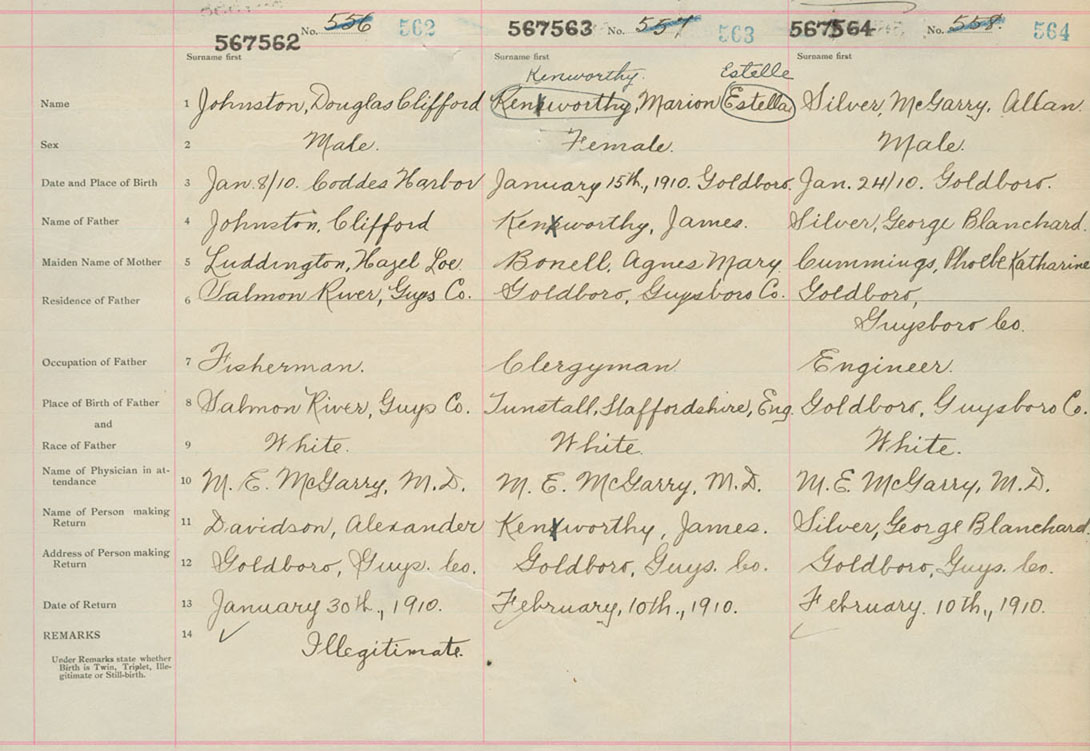 567562 No. 556 562 567563 No. 557 563 567564 No. 558 564
Surname first Surname first Surname first
Kenworthy. Estelle
Name 1 Johnston, Douglas Clifford Kenxworthy, Marion Estella Silver, McGarry, Allan.
Sex 2 Male. Female. Male.
Date and Place of Birth 3 Jan. 8/10. Coddes Harbor January 15th, 1910. Goldboro. Jan. 24/10. Goldboro.
Name of Father 4 Johnston, Clifford Kenxworthy, James. Silver, George Blanchard.
Maiden Name of Mother 5 Luddington, Hazel Loe Bonell, Agnes Mary. Cummings, Phoebe Katharine
Residence of Father 6 Salmon River, Guys Co. Goldboro, Guysboro Co. Goldboro,
Guysboro Co.
Occupation of Father 7 Fisherman. Clergyman Engineer.
Place of Birth of Father 8 Salmon River, Guys Co. Tunstall, Staffordshire, Eng. Goldboro, Guysboro Co.
and
Race of Father 9 White. White. White.
Name of Physician in at-
tendance 10 M. E. McGarry, M.D. M. E. McGarry, M.D. M. E. McGarry, M.D.
Name of Person making
Return 11 Davidson, Alexander Kenxworthy, James. Silver, George Blanchard.
Address of Person making
Return 12 Goldboro, Guys. Co. Goldboro, Guys. Co. Goldboro, Guys. Co.
Date of Return 13 January 30th., 1910. February, 10th., 1910. February. 10th., 1910.
REMARKS 14 ✓ Illegitimate.
Under Remarks state whether
Birth is Twin, Triplet, Ille-
gitimate or Still-birth.